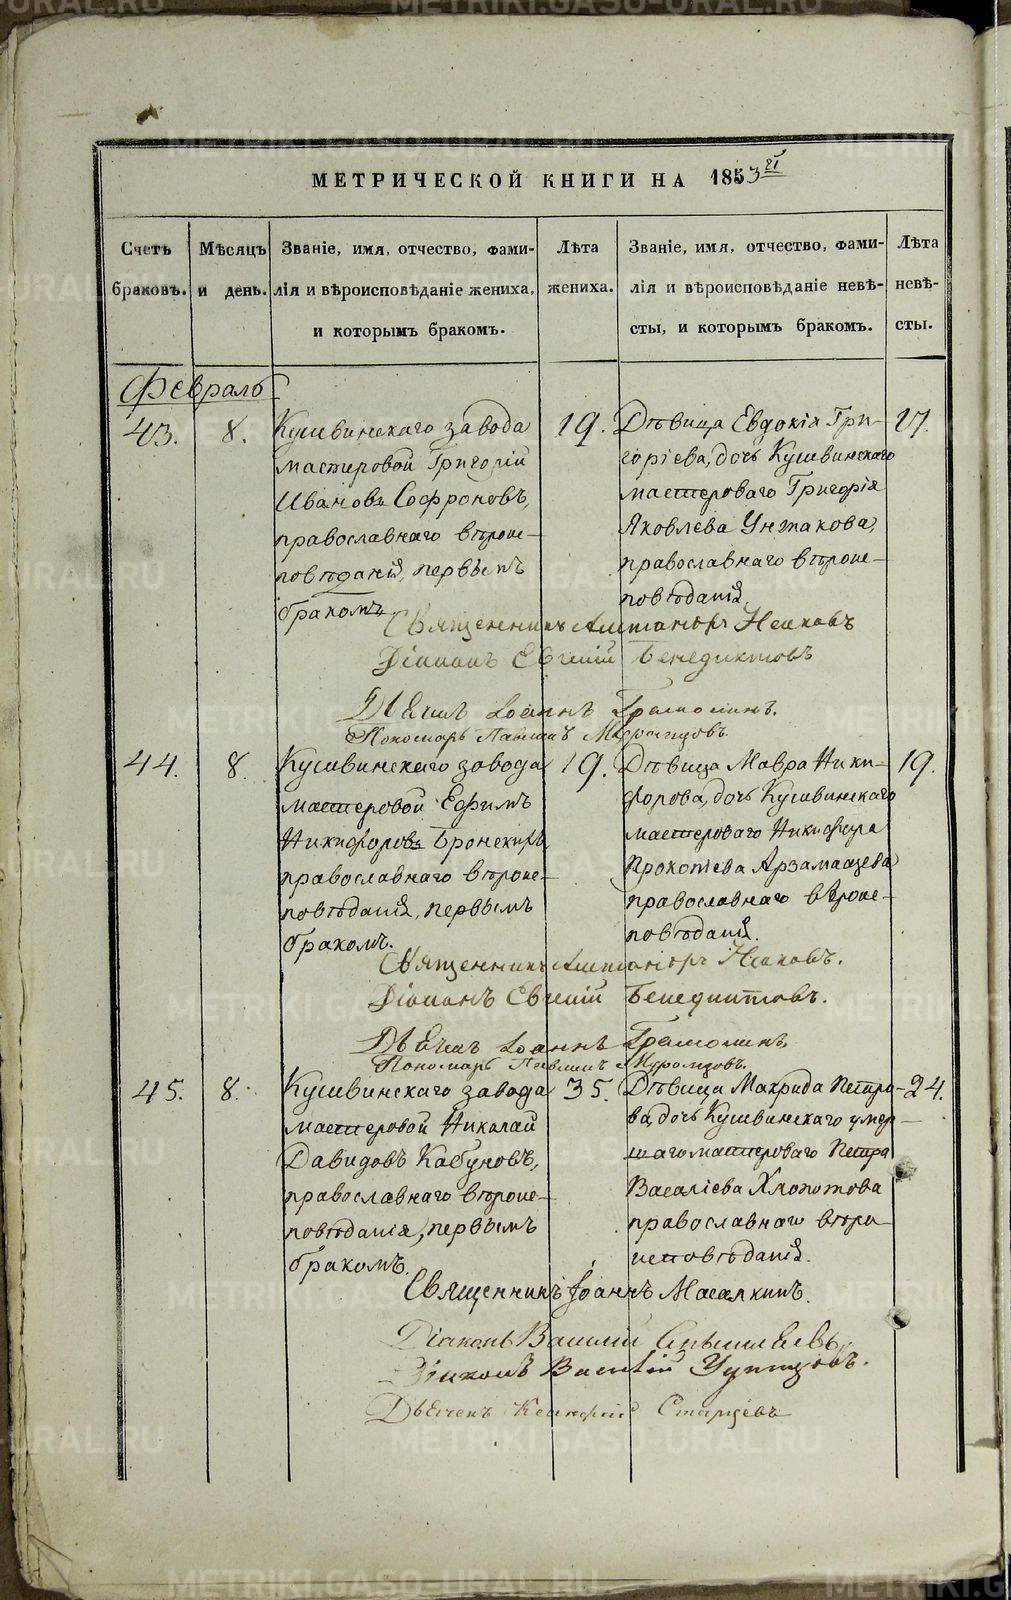 МЕТРИЧЕСКОЙ КНИГИ НА 1853й
Счетъ браковъ.
Мѣсяцъ и день.
Званіе, имя, отчество, фами-
лія и вѣроисповѣданіе жениха,
и которымъ бракомъ.
Лѣта жениха.
Званіе, имя, отчество, фами-
лія и вѣроисповѣданіе невѣ-
сты, и которымъ бракомъ.
Лѣта невѣ-
сты.
Февраль
43. 8.
Кушвинскаго завода
мастеровой Григорій
Ивановъ Софроновъ,
православнаго вѣроис-
повѣданія, первымъ
бракомъ
19.
Дѣвица Евдокія Гри-
горіева, дочь Кушвинскаго
мастероваго Григорія
Яковлева Унжакова,
православнаго вѣроис-
повѣданія.
17.
Священникъ Исаковъ
Діаконъ Евгеній Бенедиктовъ
Дьячекъ Іоаннъ
Пономарь
44. 8.
Кушвинскаго завода
мастеровой Ефимъ
Никифоровъ Бронскихъ,
православнаго вѣроис-
повѣданія, первымъ
бракомъ.
19.
Дѣвица Мавра Ники-
форова, дочь Кушвинскаго
мастероваго Никифора
Прокопіева Арзамасцева
православнаго вѣроис-
повѣданія.
19.
Священникъ Исаковъ.
Діаконъ Евгеній Бенедиктовъ.
Дьячекъ Іоаннъ
Пономарь
45. 8.
Кушвинскаго завода
мастеровой Николай
Давидовъ Кабуновъ,
православнаго вѣроис-
повѣданія, первымъ
бракомъ.
35.
Дѣвица Макрида Петро-
ва, дочь Кушвинскаго умер-
шаго мастероваго Петра
Васаліева Хлопотова
православнаго вѣро-
исповѣданія.
24.
Священникъ Іоаннъ Масалкинъ.
Діаконъ Василій
Діаконъ Василій
Дьячекъ Старцевъ
METRIKI.GASO-URAL.RU